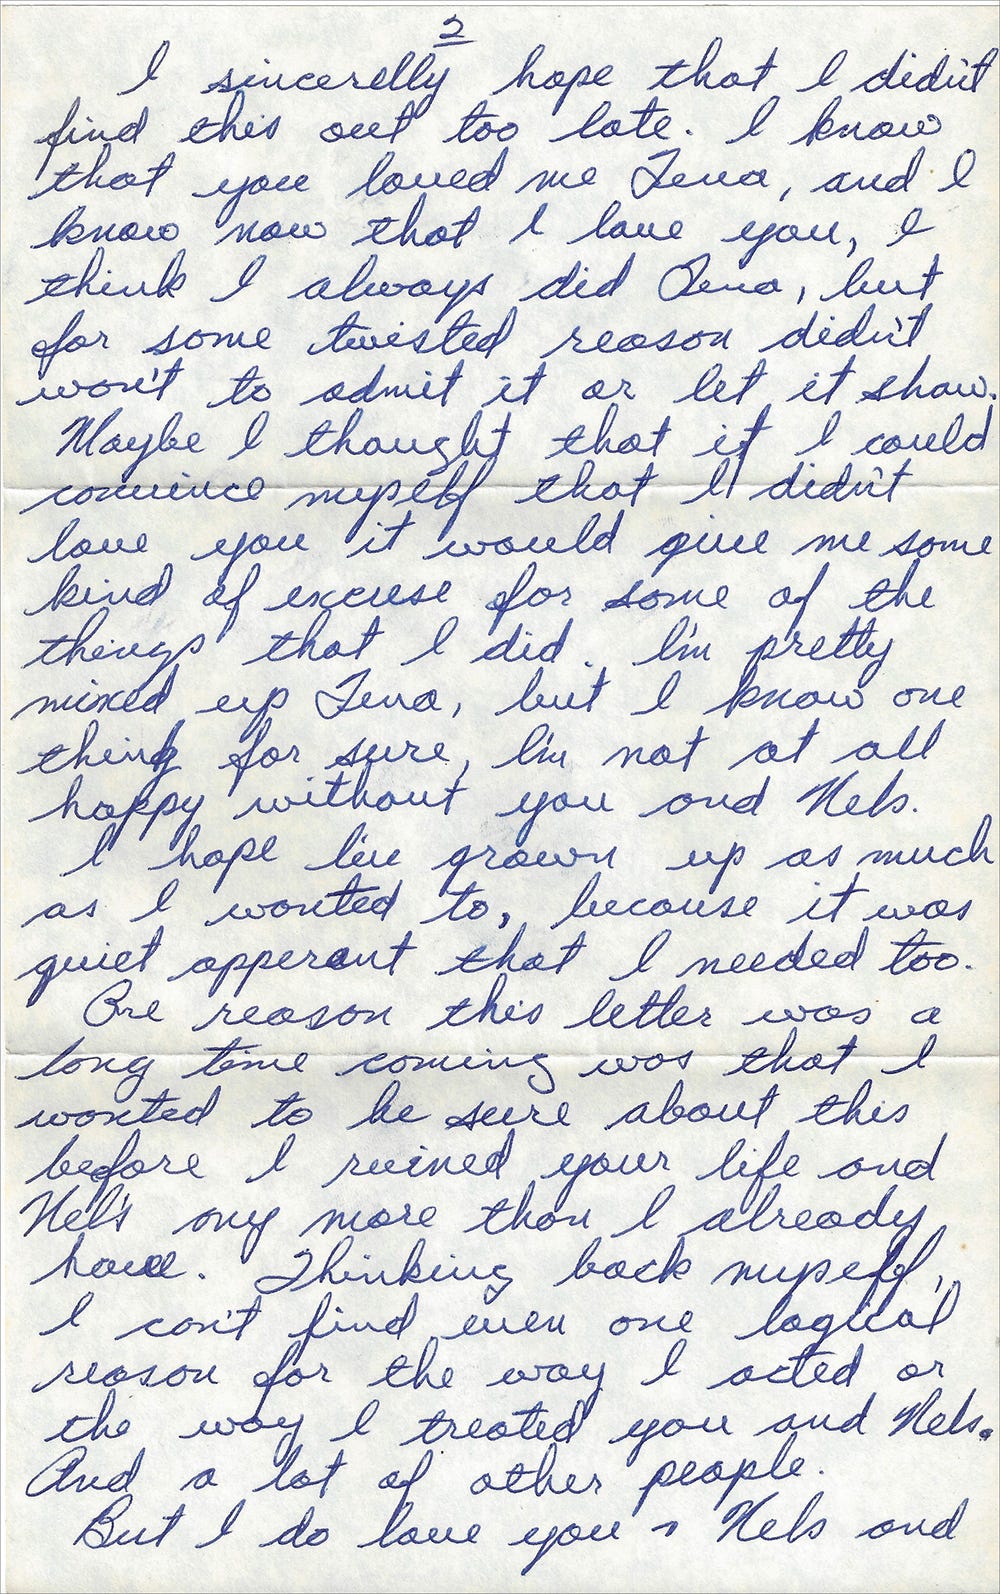 2
I sincerelly hope that I didn't
find this out too late. I know
that you loved me Tena, and I
know now that I love you, I
think I always did Tena, but
for some twisted reason didn't
won't to admit it or let it show.
Maybe I thought that if I could
convince myself that I didn't
love you it would give me some
kind of excuse for some of the
things that I did. I'm pretty
mixed up Tena, but I know one
thing for sure, I'm not at all
happy without you and Nels.
I hope I've grown up as much
as I wanted to, because it was
quiet apperant that I needed too.
One reason this letter was a
long time coming was that I
wanted to be sure about this
before I ruined your life and
Nel's any more than I already
have. Thinking back myself,
I can't find even one logical
reason for the way I acted or
the way I treated you and Nels.
And a lot of other people.
But I do love you Nels and